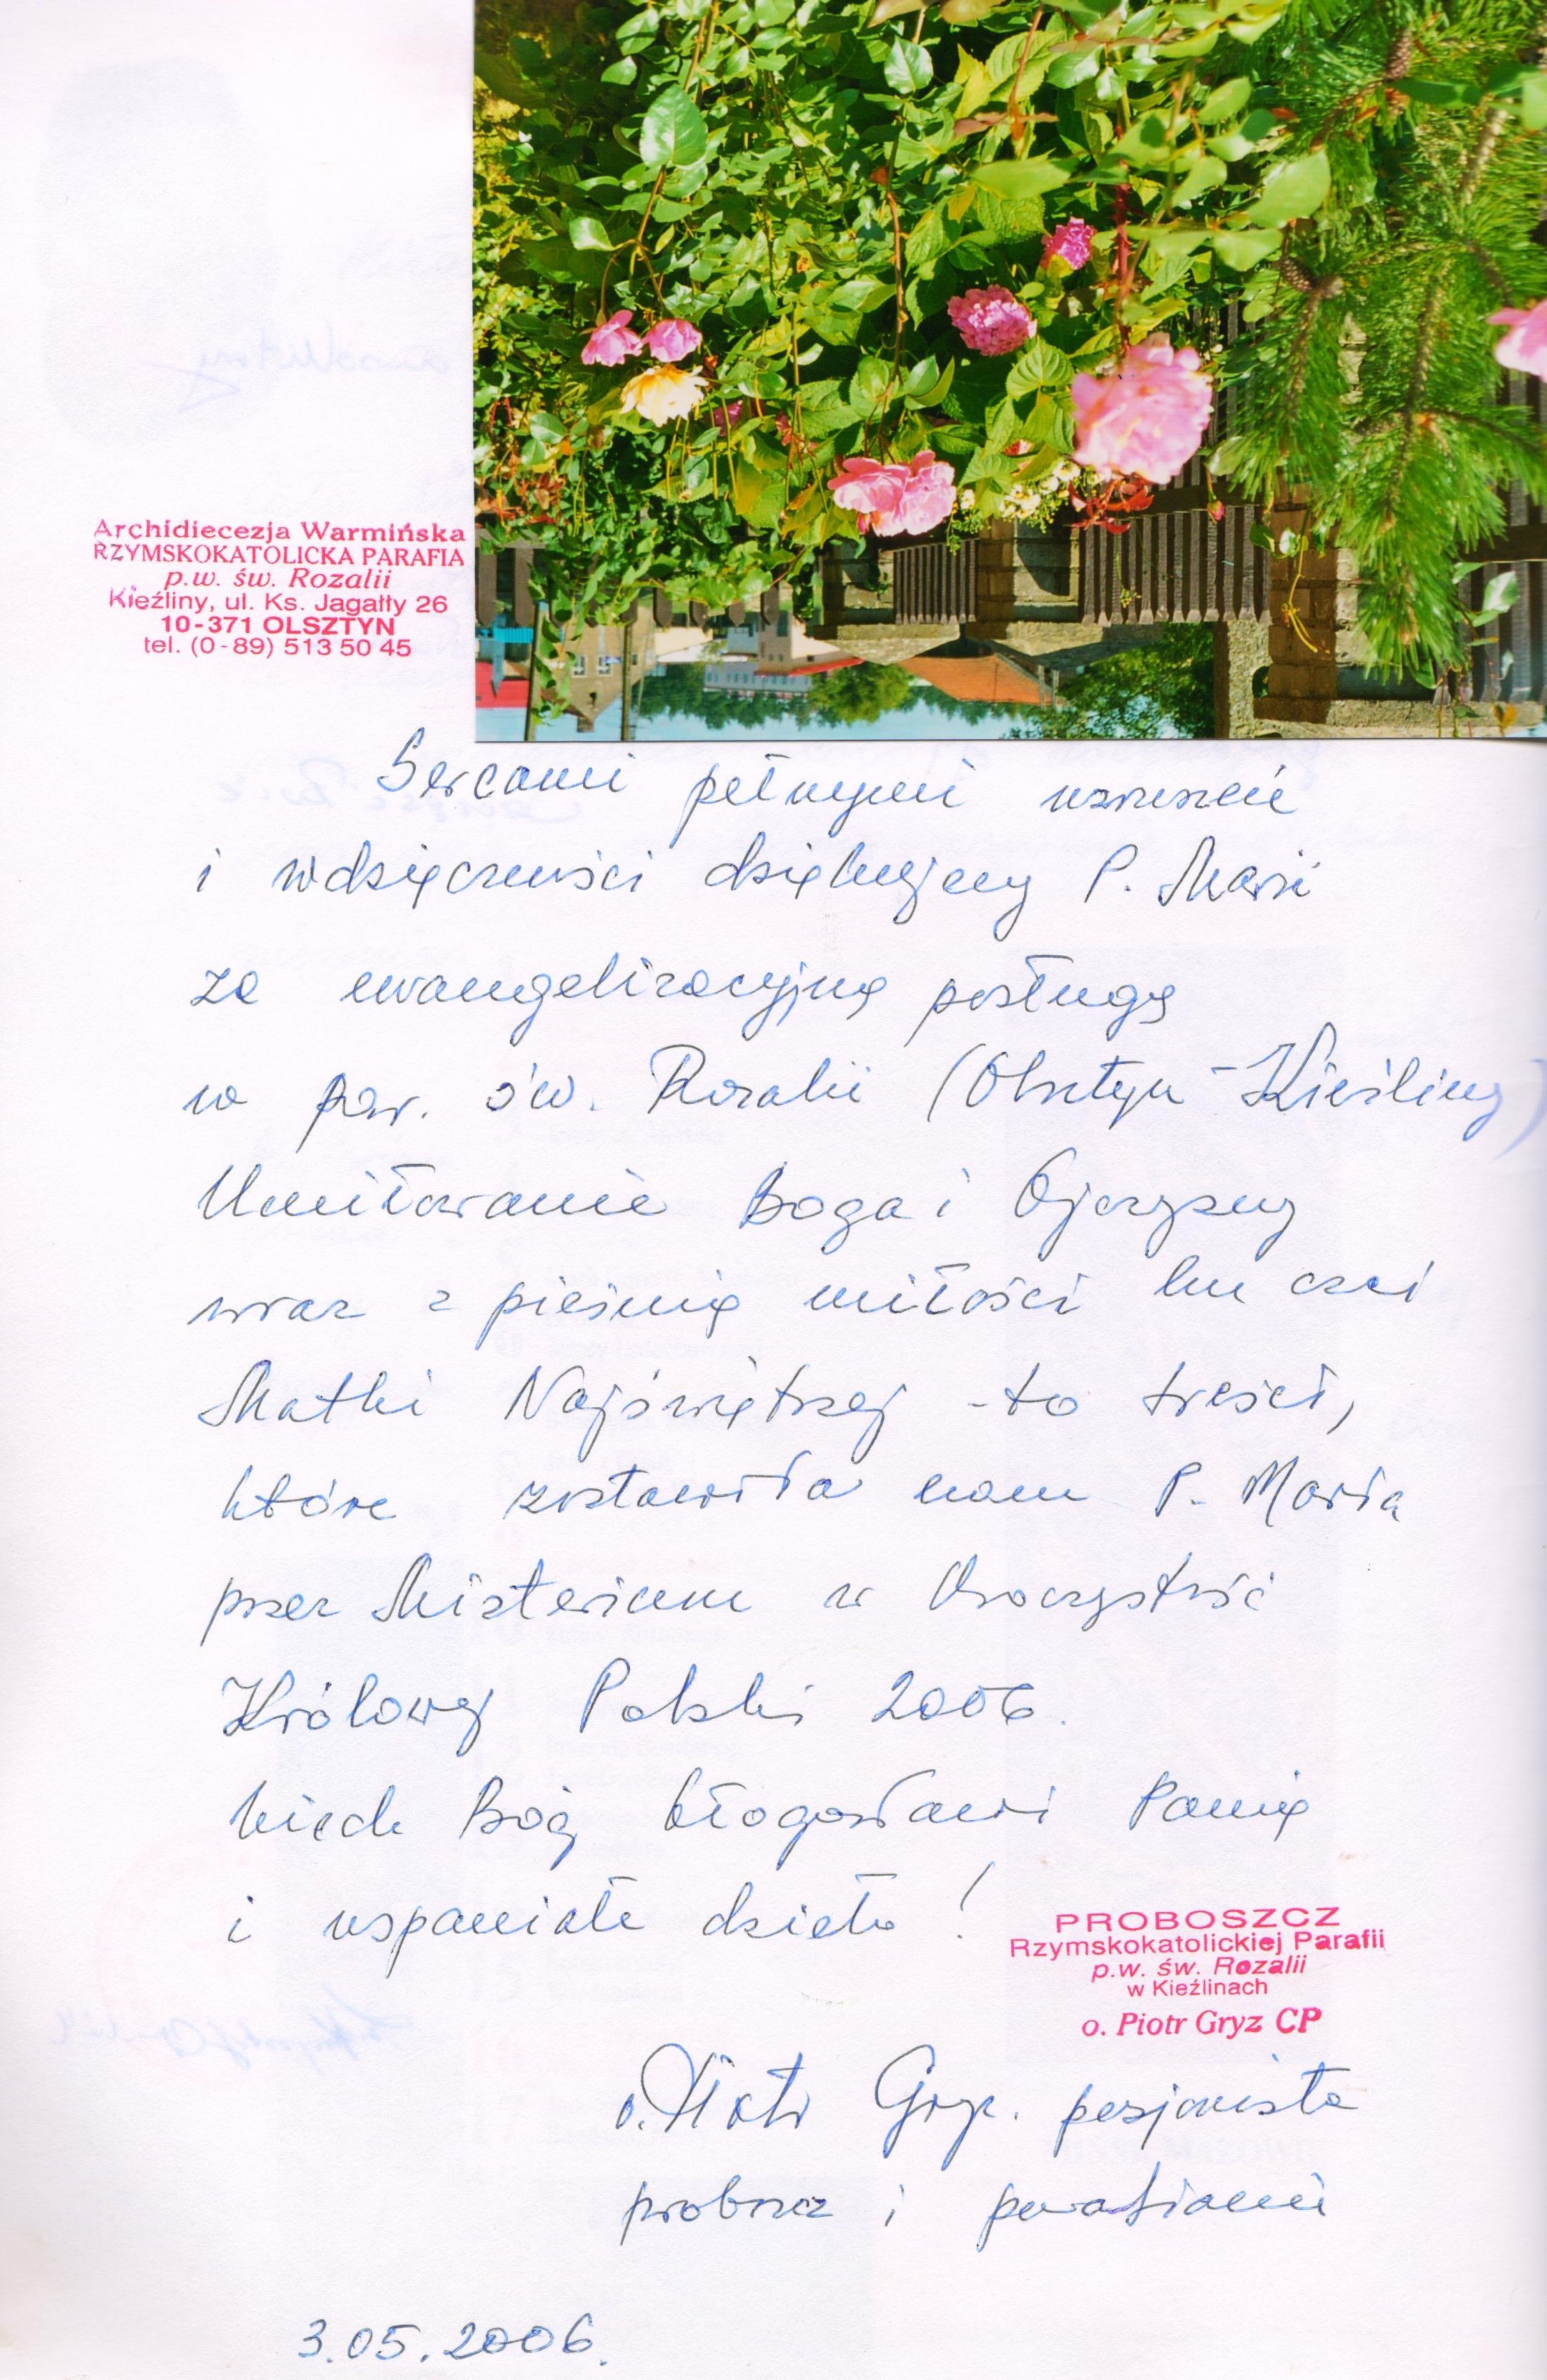 Archidiecezja Warmińska
RZYMSKOKATOLICKA PARAFIA
p.w. św. Rozalii
Kieźliny, ul. Ks. Jagałły 26
10-371 OLSZTYN
tel. (0-89) 513 50 45
Sercami pełnymi wzruszeń
i wdzięczności dziękujemy P. Marii
za ewangelizacyjną posługę
w par. św. Rozalii (Olsztyn - Kieźliny)
Umiłowanie Boga i Ojczyzny
wraz z pieśnią miłości ku czci
Matki Najświętszej - to treści,
które zostawiła nam P. Maria
przez Misterium w Uroczystość
Królowej Polski 2006.
Niech Bóg błogosławi Panią
i wspaniałe dzieło!
PROBOSZCZ
Rzymskokatolickiej Parafii
p.w. św. Rozalii
w Kieźlinach
o. Piotr Gryz CP
o. Piotr Gryz. pasjonista
proboszcz i parafianie
3.05.2006.